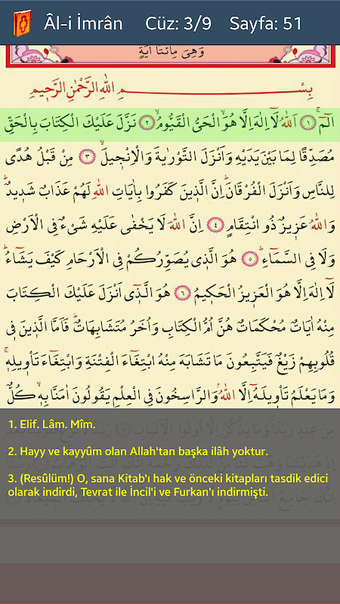 Âl-i İmrân Cüz: 3/9 Sayfa: 51
وَهِىَ مِائَتَا اٰيَةٍ
بِسْمِ اللّٰهِ الرَّحْمٰنِ الرَّحٖيمِ
الٓمٓ ﴿١﴾ اَللّٰهُ لَٓا اِلٰهَ اِلَّا هُوَ الْحَىُّ الْقَيُّومُ ﴿٢﴾ نَزَّلَ عَلَيْكَ الْكِتَابَ بِالْحَقِّ
مُصَدِّقًا لِمَا بَيْنَ يَدَيْهِ وَاَنْزَلَ التَّوْرٰيةَ وَالْاِنْجٖيلَ ﴿٣﴾ مِنْ قَبْلُ هُدًى
لِلنَّاسِ وَاَنْزَلَ الْفُرْقَانَ اِنَّ الَّذٖينَ كَفَرُوا بِاٰيَاتِ اللّٰهِ لَهُمْ عَذَابٌ شَدٖيدٌ
وَاللّٰهُ عَزٖيزٌ ذُو انْتِقَامٍ ﴿٤﴾ اِنَّ اللّٰهَ لَا يَخْفٰى عَلَيْهِ شَىْءٌ فِى الْاَرْضِ
وَلَا فِى السَّمَٓاءِ ﴿٥﴾ هُوَ الَّذٖى يُصَوِّرُكُمْ فِى الْاَرْحَامِ كَيْفَ يَشَٓاءُ
لَٓا اِلٰهَ اِلَّا هُوَ الْعَزٖيزُ الْحَكٖيمُ ﴿٦﴾ هُوَ الَّذٖٓى اَنْزَلَ عَلَيْكَ الْكِتَابَ
مِنْهُ اٰيَاتٌ مُحْكَمَاتٌ هُنَّ اُمُّ الْكِتَابِ وَاُخَرُ مُتَشَابِهَاتٌ فَاَمَّا الَّذٖينَ فٖى
قُلُوبِهِمْ زَيْغٌ فَيَتَّبِعُونَ مَا تَشَابَهَ مِنْهُ ابْتِغَٓاءَ الْفِتْنَةِ وَابْتِغَٓاءَ تَاْوٖيلِهٖ
وَمَا يَعْلَمُ تَاْوٖيلَهُٓ اِلَّا اللّٰهُ وَالرَّاسِخُونَ فِى الْعِلْمِ يَقُولُونَ اٰمَنَّا بِهٖ كُلٌّ
1. Elif. Lâm. Mîm.
2. Hayy ve kayyûm olan Allah'tan başka ilâh yoktur.
3. (Resûlüm!) O, sana Kitab'ı hak ve önceki kitapları tasdik edici
olarak indirdi, Tevrat ile İncil'i ve Furkan'ı indirmişti.